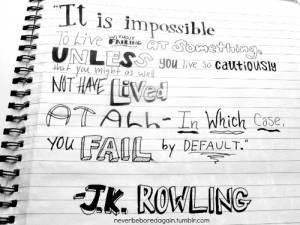 "It is impossible
To Live WITHOUT FAILING AT Something,
UNLESS you live so cautiously
that you might as well
NOT HAVE Lived
AT ALL - In Which Case,
you FAIL by DEFAULT."
-J.K. ROWLING
neverbeboredagain.tumblr.com